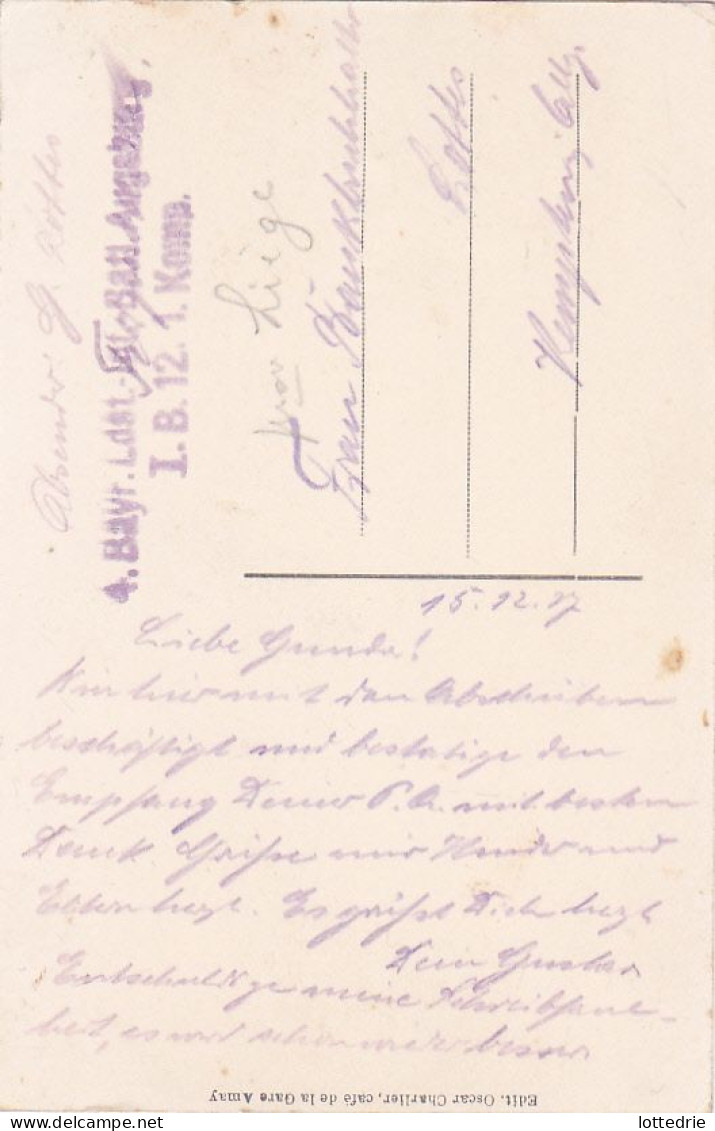 Absender G. Lottes
4. Bayr. Ldst.-Inf.-Batl. Augsburg.
I. B. 12. 1. Komp.
Prov Liège
Frau
Lottes
15.12.17
Liebe Gunda!
Bin hier mit dem Abschreiben
beschäftigt und bestätige den
Empfang Deiner P. K. mit bestem
Dank. Grüße mir Kinder und
Eltern herzl. Es grüßt Dich herzl.
Dein Gustav
Entschuldige meine Schreibfaul-
heit, es wird schon wieder besser.
Edit. Oscar Charlier, café de la Gare Amay
lottedrie